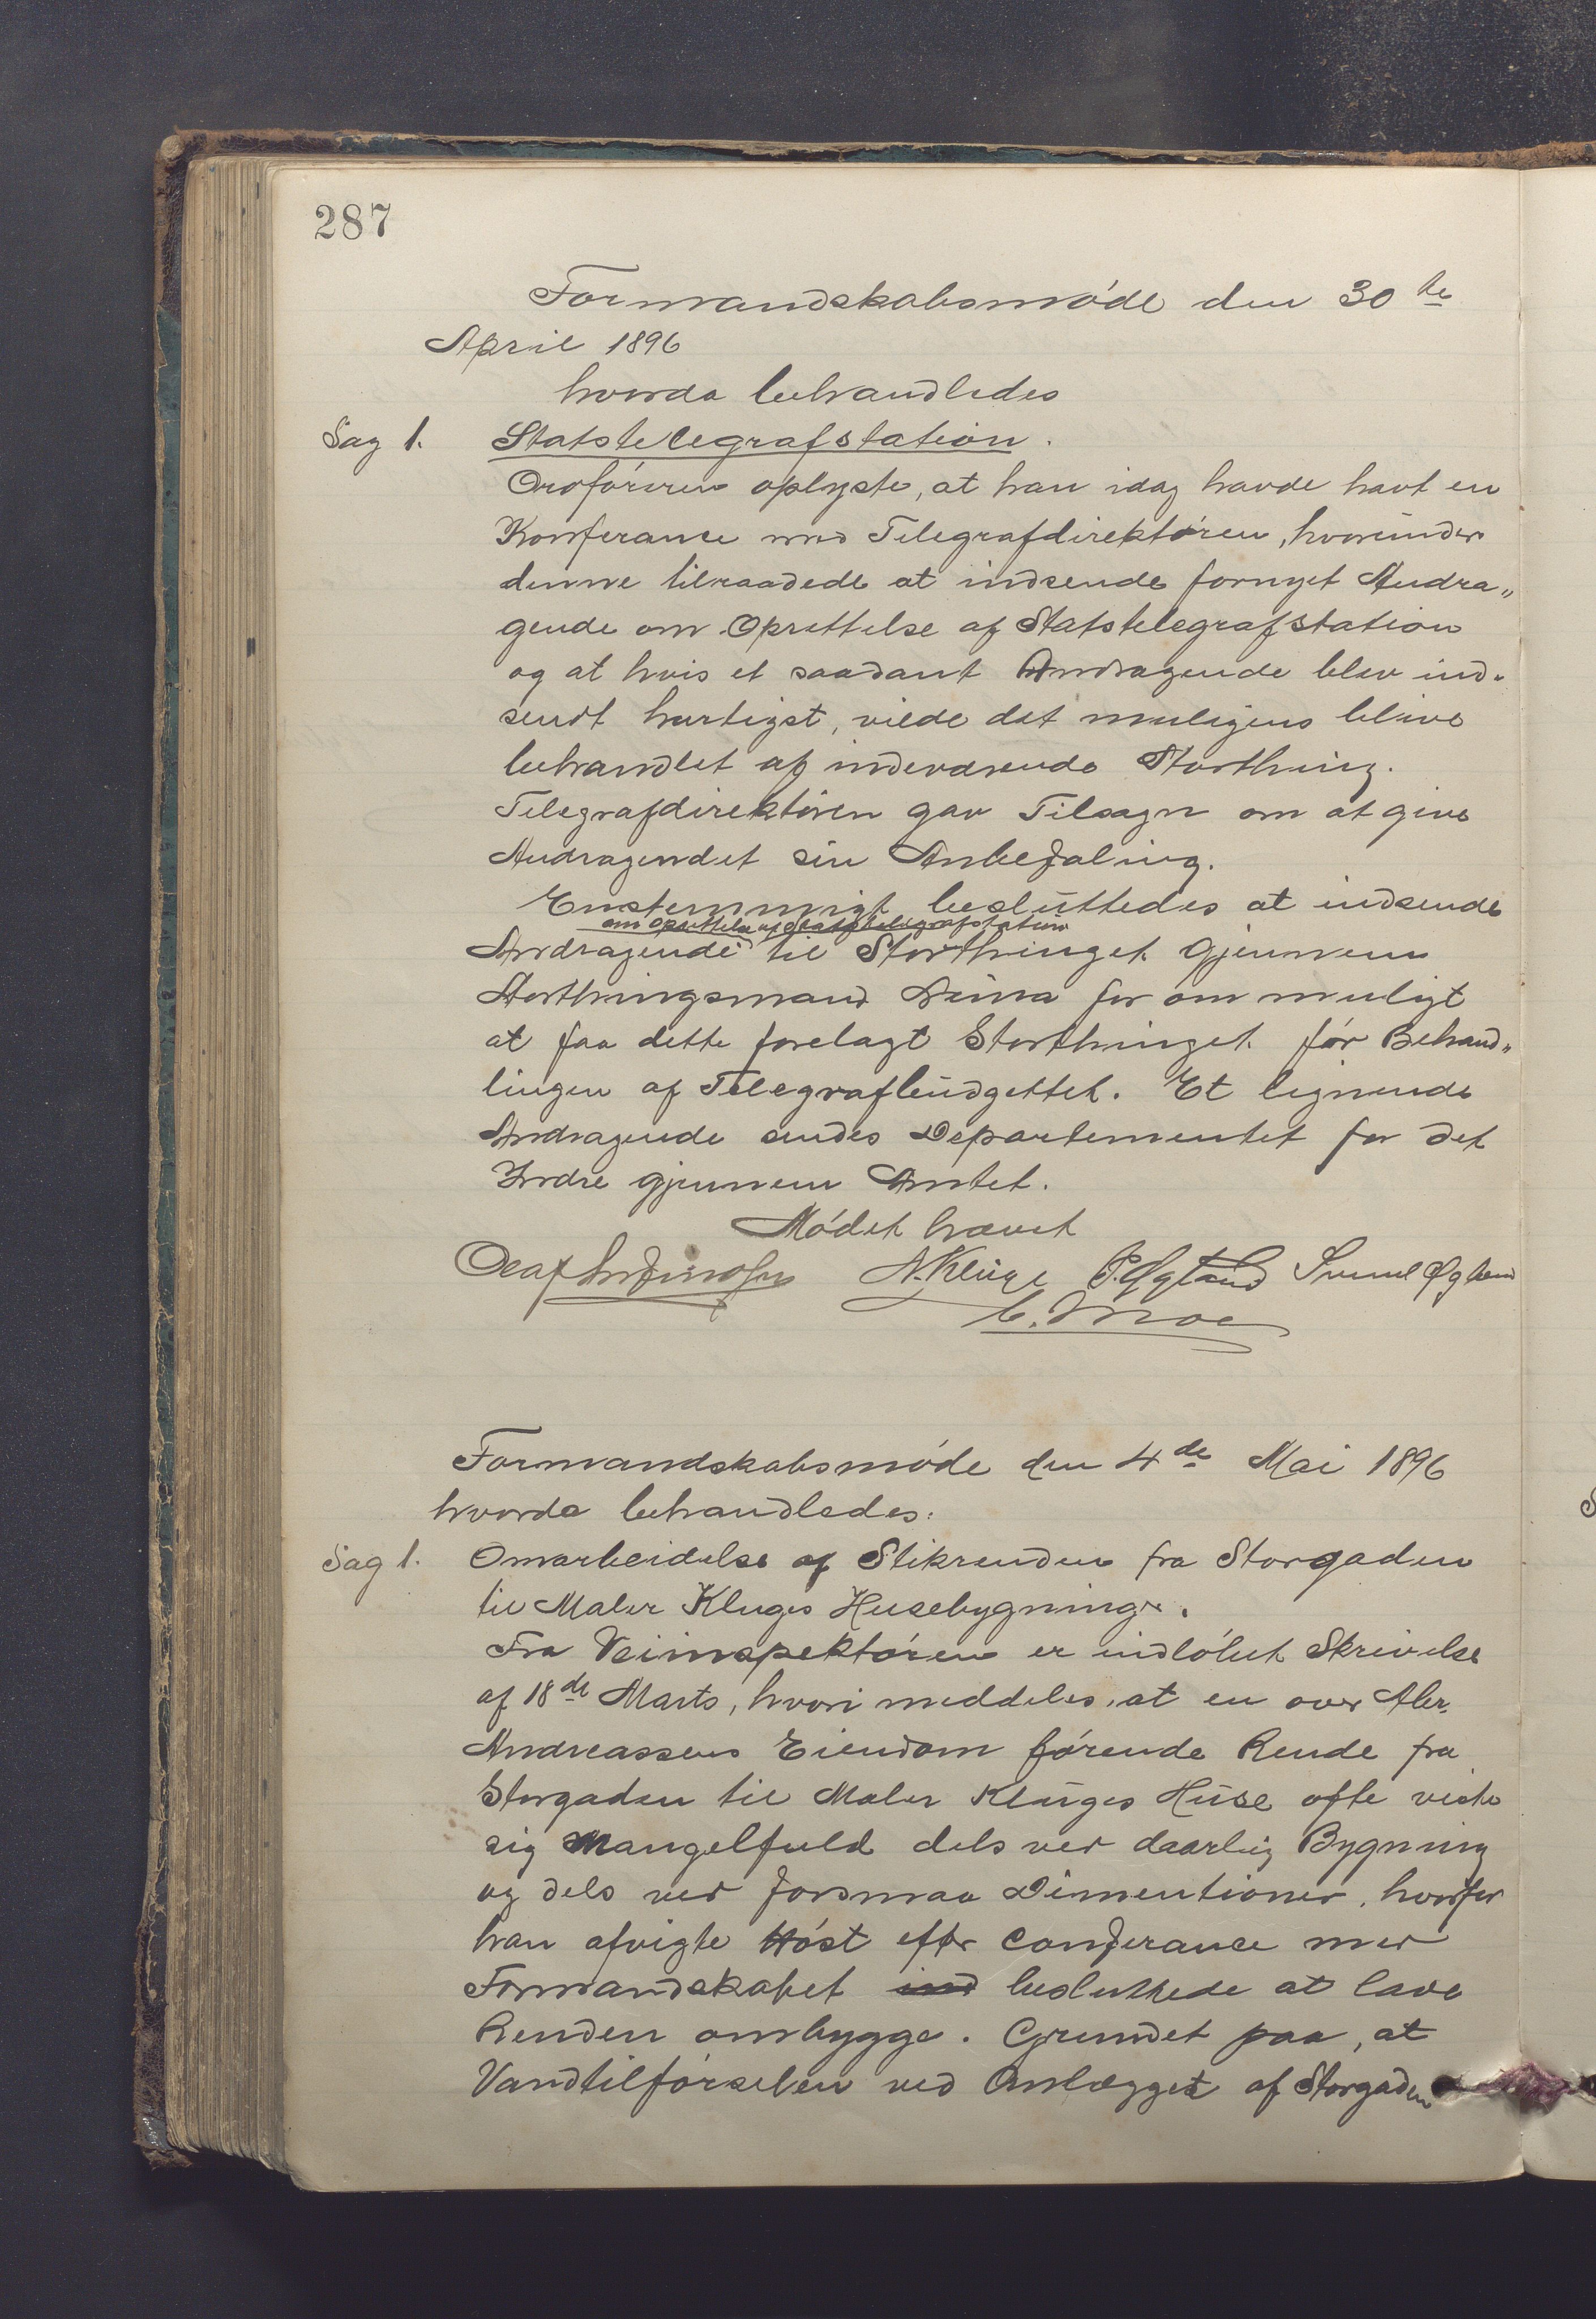 287
Formandskabsmøde den 30te
April 1896
hvorda behandledes
Sag 1. Statstelegrafstation.
Ordføreren oplyste, at han idag havde havt en
Konferance med Telegrafdirektøren, hvorunder
denne tilraadede at indsende fornyet Andra„
gende om Oprettelse af Statstelegrafstation
og at hvis et saadant Andragende blev ind-
sendt hurtigst, vilde det muligens blive
behandlet af indeværende Storthing.
Telegrafdirektøren gav Tilsagn om at give
Andragendet sin Anbefaling.
Enstemmigt besluttedes at indsende
om Oprettelse af Statstelegrafstation
Andragende til Storthinget gjennem
Storthingsmand for om muligt
at faa dette forelagt Storthinget før Behand„
lingen af Telegrafbudgettet. Et lignende
Andragende sendes Departementet for det
Indre gjennem Amtet.
Mødet hævet
Olaf A. Kluge P. Øgland Øglænd
C. Moe
Formandskabsmøde den 4de Mai 1896
hvorda behandledes:
Sag 1. Omarbeidelse af Stikrenden fra Storgaden
til Maler Kluges Husebygninger.
Fra Veiinspektøren er indløbet Skrivelse
af 18de Marts, hvori meddeles, at en over
Andreassens Eiendom førende Rende fra
Storgaden til Maler Kluges Huse ofte viste
sig mangelfuld dels ved daarlig Bygning
og dels ved forsmaa Dimentioner, hvorfor
han afvigte Høst efter Conferance med
Formandskabet ind besluttede at lade
Renden ombygge. Grundet paa, at
Vandtilførselen ved Anlægget af Storgaden